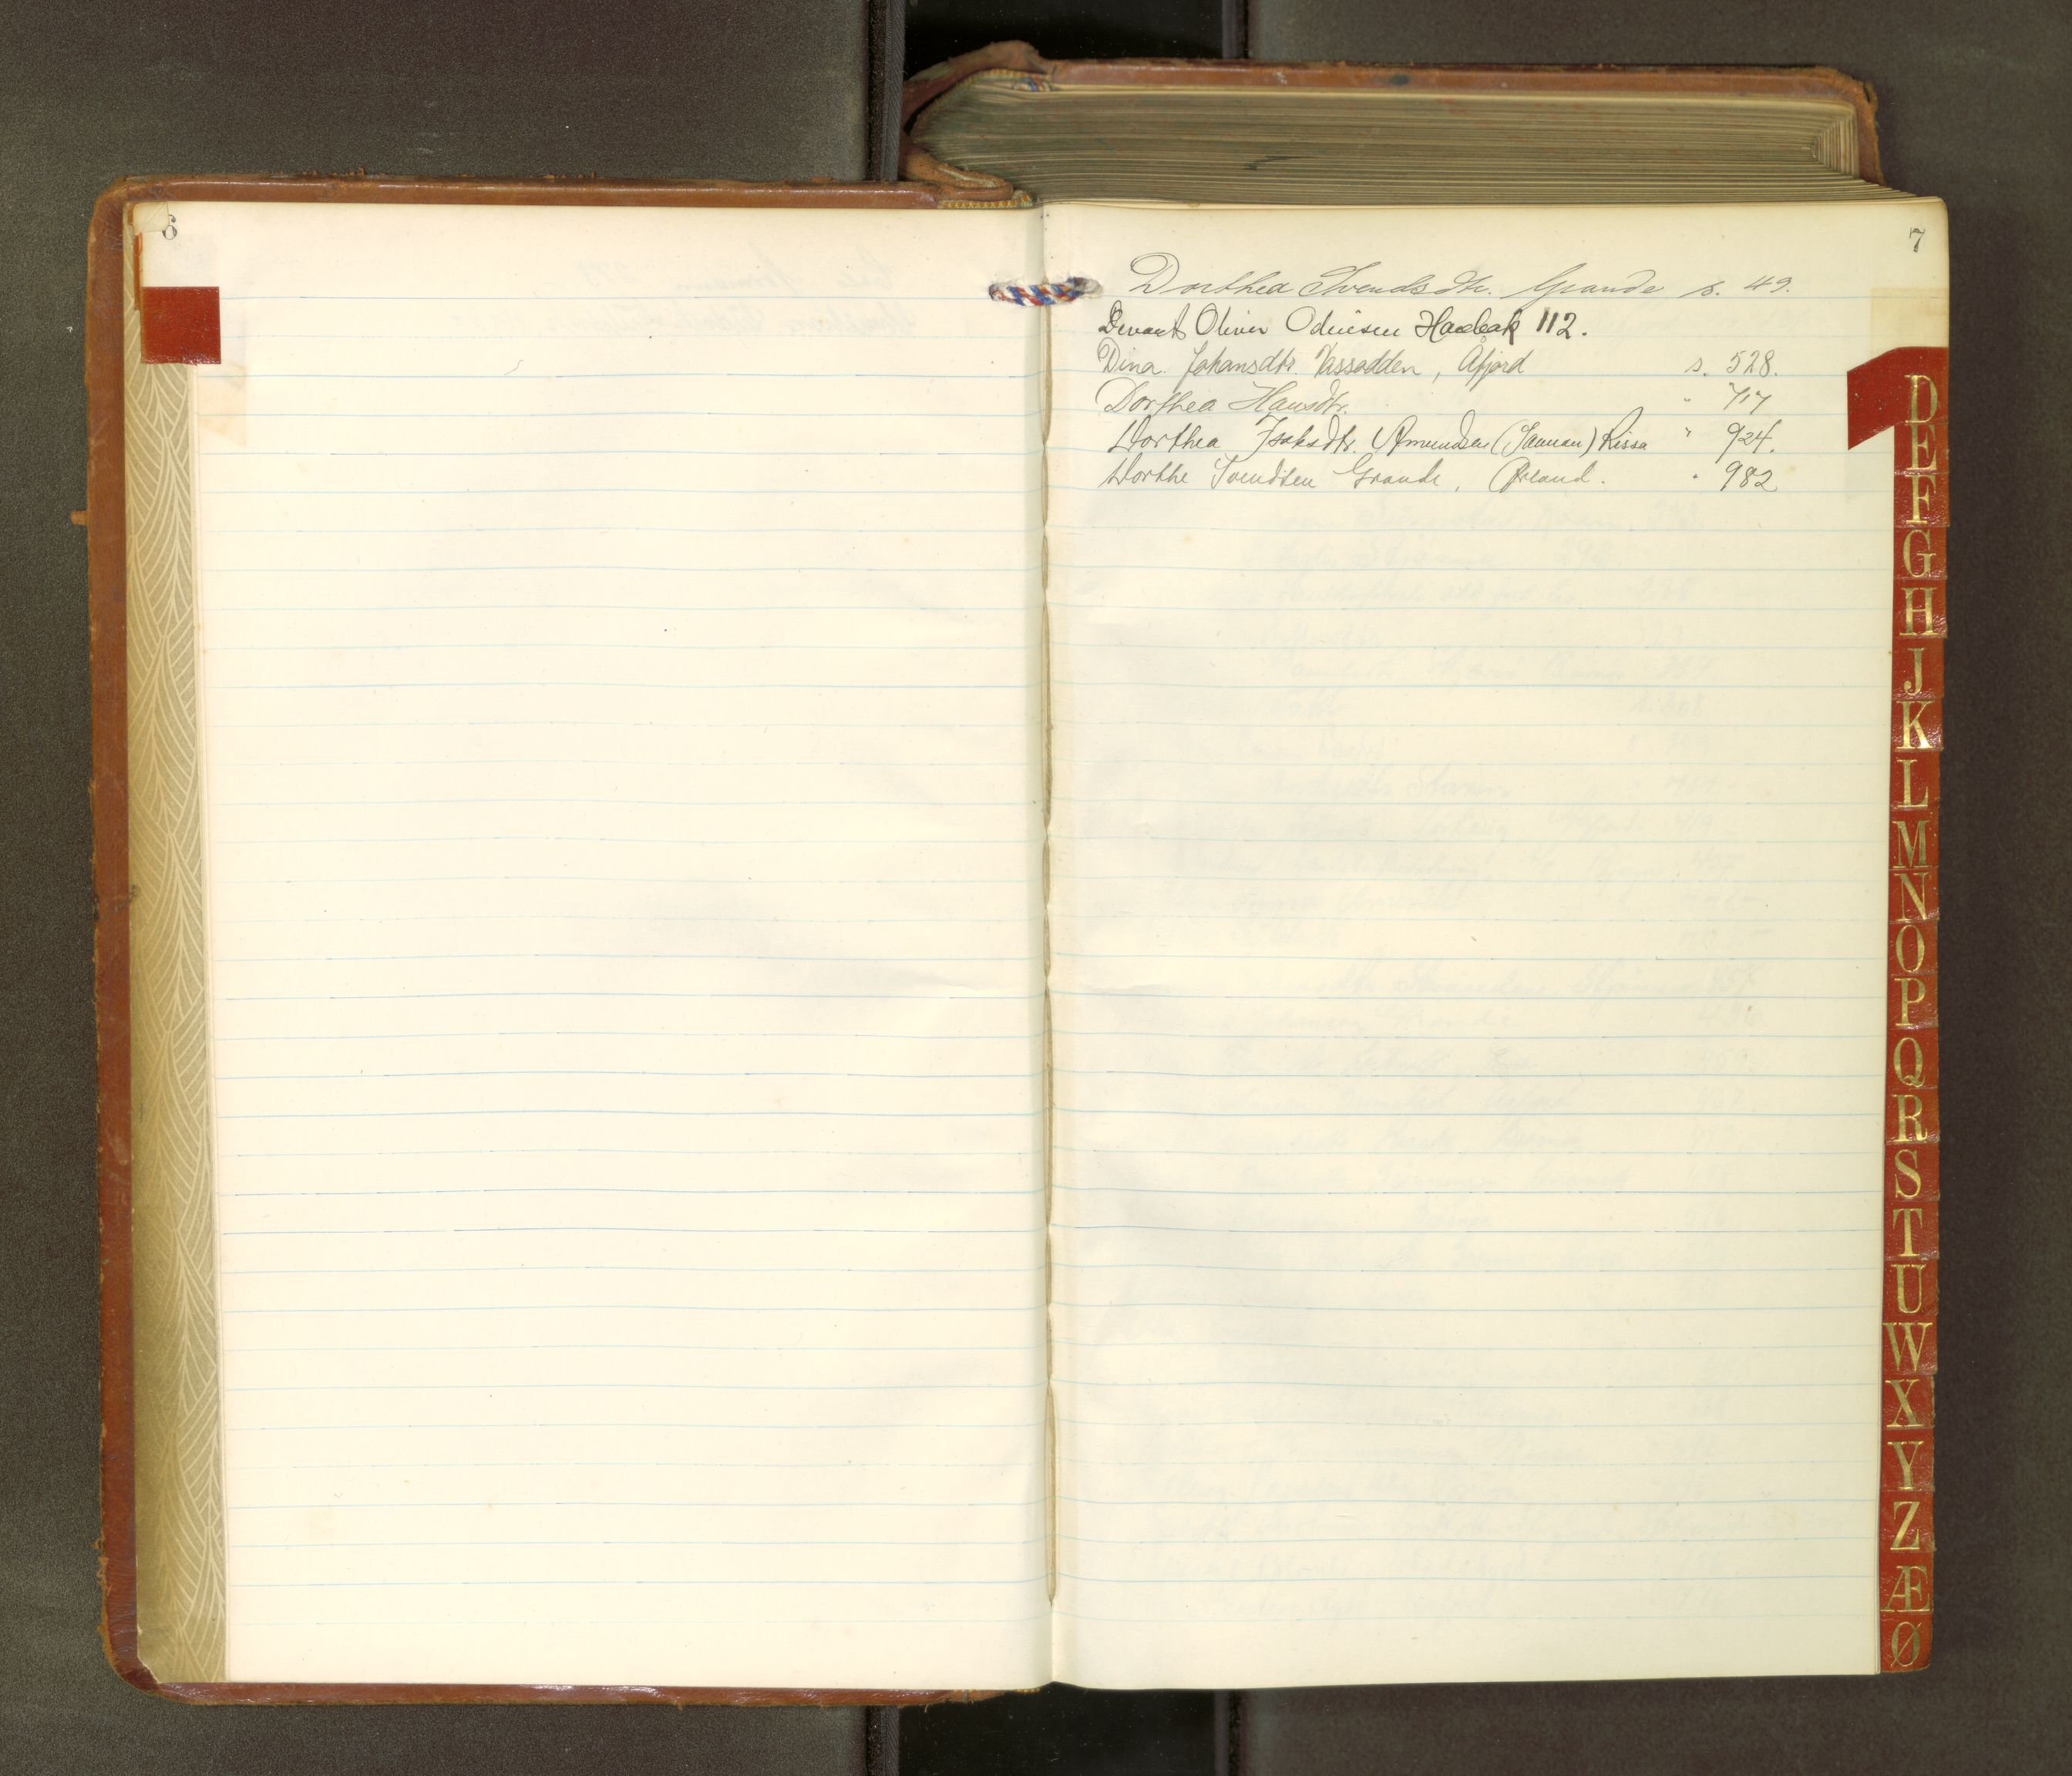 6
7
Dorthea Svendsdtr. Grande s. 49.
Oliver Odinsen 112.
Dina Johansdtr. Vassødden, Åfjord s. 528.
Dorthea Hansdtr. " 717
Dorthea Isaksdtr. Amundsen Rissa " 924.
Dorthe Svendsen Grande, Ørland. " 982
D
E
F
G
H
J
K
L
M
N
O
P
Q
R
S
T
U
W
X
Y
Z
Æ
Ø